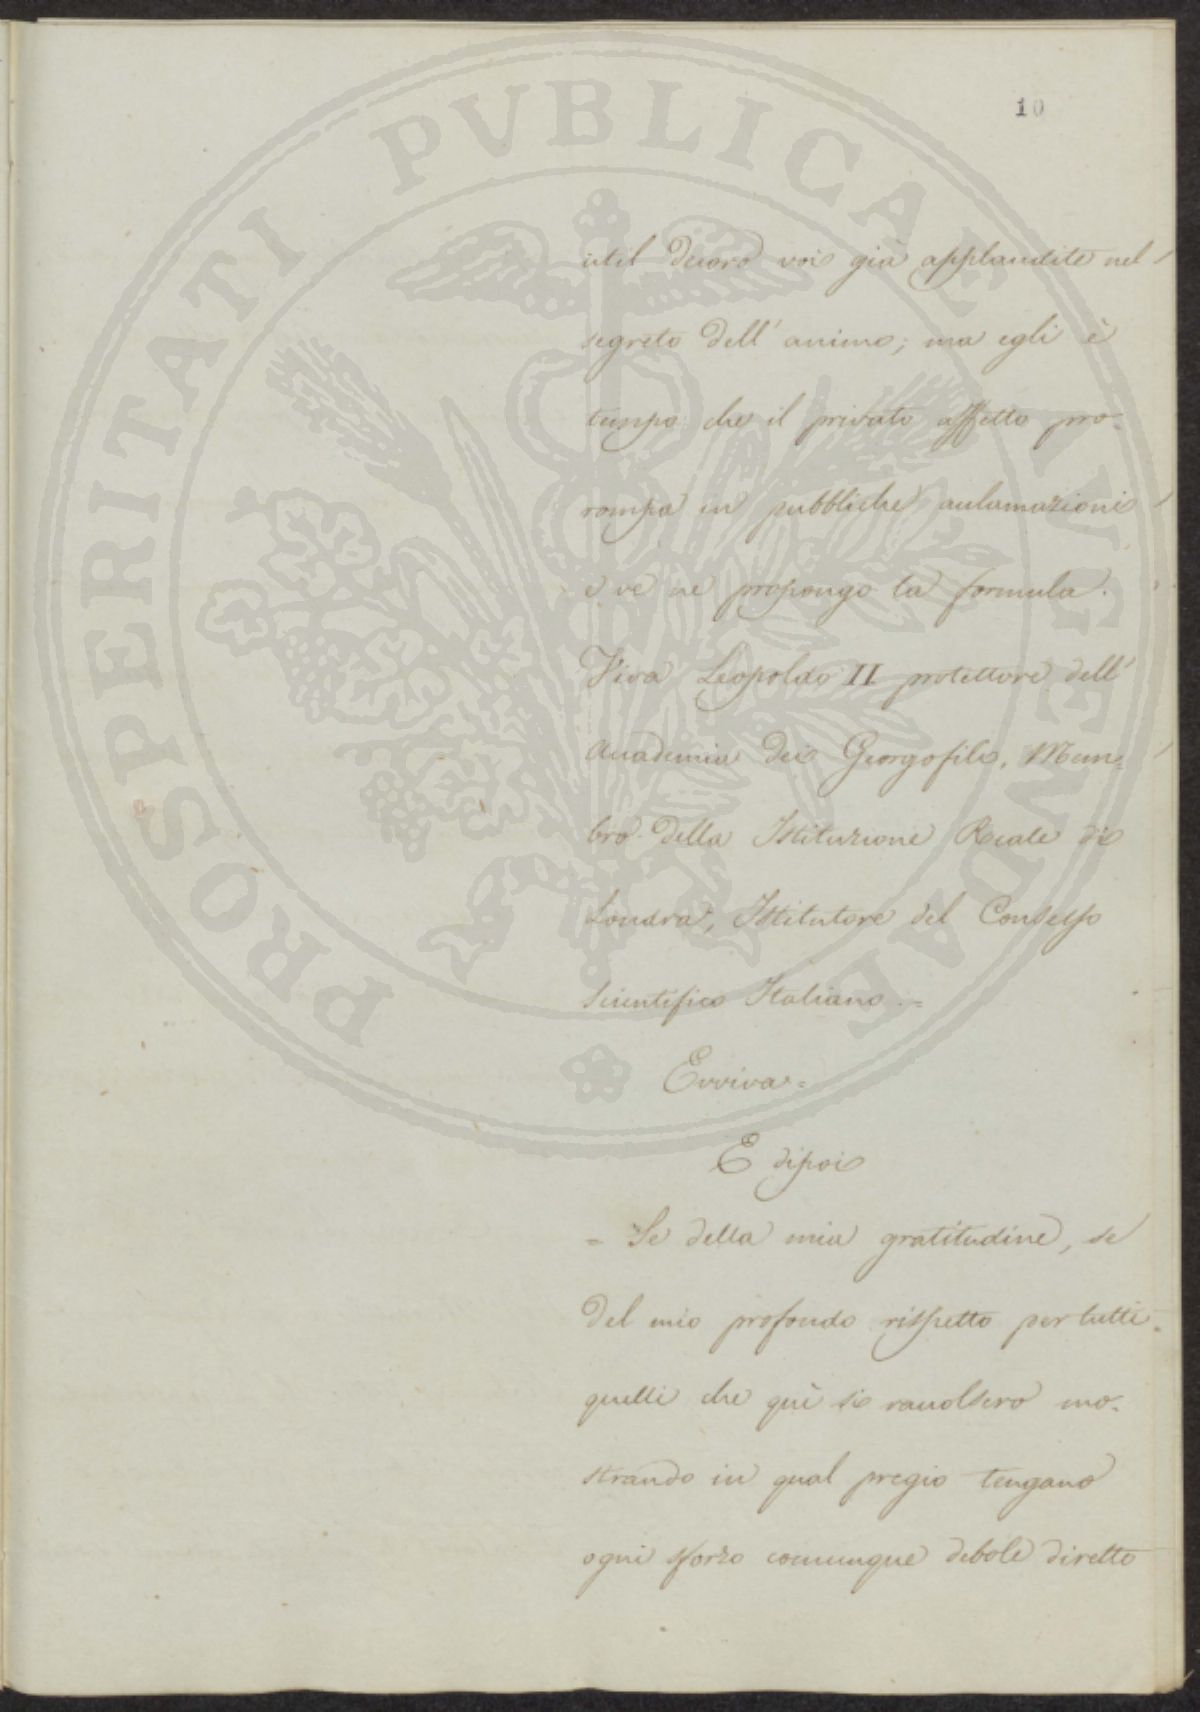 10
util decoro voi già applaudite nel
segreto dell' animo; ma egli è
tempo che il privato affetto pro-
rompa in pubbliche acclamazioni
e ve ne propongo la formula.
Viva Leopoldo II protettore dell'
Accademia dei Georgofili, Mem=
bro della Istituzione Reale di
Londra, Istitutore del Consesso
Scientifico Italiano.=
Evviva=
E dipoi
= Se della mia gratitudine, se
del mio profondo rispetto per tutti
quelli che quì si raccolsero mo-
strando in qual pregio tengano
ogni sforzo comunque debole diretto
PROSPERITATI PVBLICAE AVGENDAE